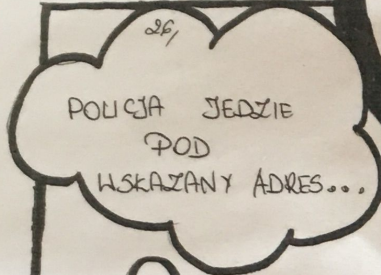 26,
POLICJA JEDZIE
POD
WSKAZANY ADRES...